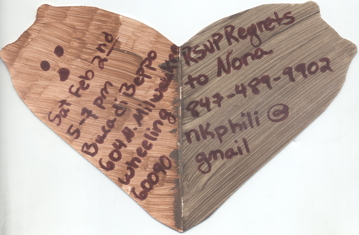 Sat Feb 2nd
5-7 pm
Buca di Beppo
604 N. Milwaukee
Wheeling
60090
RSVP Regrets
to Nona
847-489-9902
nkphili @
gmail